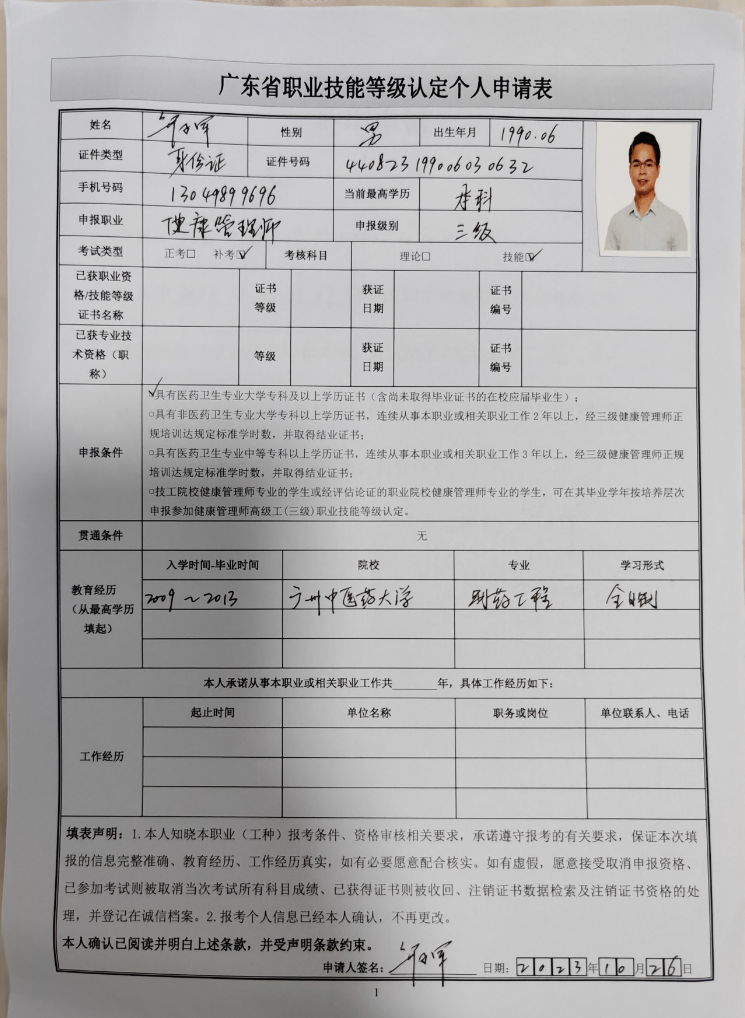 广东省职业技能等级认定个人申请表
姓名 性别 男 出生年月 1990.06
证件类型 身份证 证件号码 440823199006030632
手机号码 13049899696 当前最高学历 本科
申报职业 健康管理师 申报级别 三级
考试类型 正考□ 补考☑ 考核科目 理论□ 技能☑
已获职业资格/技能等级证书名称 证书等级 获证日期 证书编号
已获专业技术资格（职称） 等级 获证日期 证书编号
申报条件
☑具有医药卫生专业大学专科及以上学历证书（含尚未取得毕业证书的在校应届毕业生）；
□具有非医药卫生专业大学专科以上学历证书，连续从事本职业或相关职业工作2年以上，经三级健康管理师正
规培训达规定标准学时数，并取得结业证书；
□具有医药卫生专业中等专科以上学历证书，连续从事本职业或相关职业工作3年以上，经三级健康管理师正规
培训达规定标准学时数，并取得结业证书；
□技工院校健康管理师专业的学生或经评估论证的职业院校健康管理师专业的学生，可在其毕业学年按培养层次
申报参加健康管理师高级工(三级)职业技能等级认定。
贯通条件 无
教育经历（从最高学历填起） 入学时间-毕业时间 院校 专业 学习形式
2009～2013 广州中医药大学 制药工程 全日制
本人承诺从事本职业或相关职业工作共____年，具体工作经历如下：
工作经历 起止时间 单位名称 职务或岗位 单位联系人、电话
填表声明：1.本人知晓本职业（工种）报考条件、资格审核相关要求，承诺遵守报考的有关要求，保证本次填
报的信息完整准确、教育经历、工作经历真实，如有必要愿意配合核实。如有虚假，愿意接受取消申报资格、
已参加考试则被取消当次考试所有科目成绩、已获得证书则被收回、注销证书数据检索及注销证书资格的处
理，并登记在诚信档案。2.报考个人信息已经本人确认，不再更改。
本人确认已阅读并明白上述条款，并受声明条款约束。
申请人签名： 日期：2023年10月26日
1